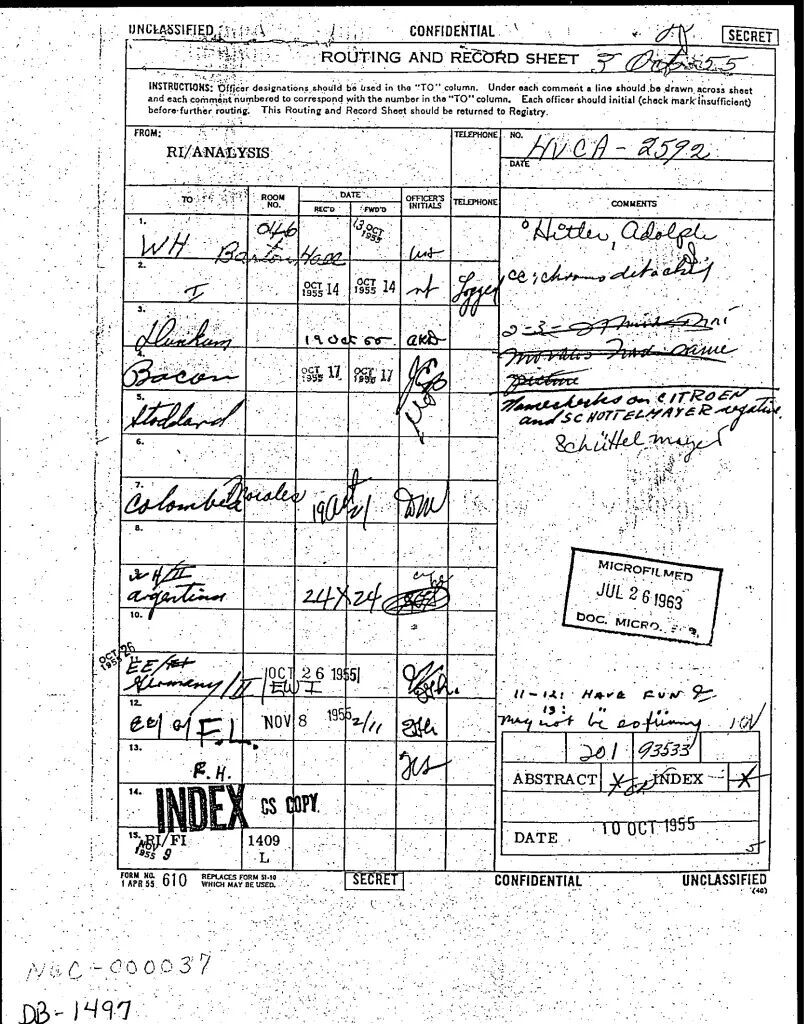 UNCLASSIFIED CONFIDENTIAL SECRET
ROUTING AND RECORD SHEET 3 Oct 55
INSTRUCTIONS: Officer designations should be used in the "TO" column. Under each comment a line should be drawn across sheet
and each comment numbered to correspond with the number in the "TO" column. Each officer should initial (check mark insufficient)
before further routing. This Routing and Record Sheet should be returned to Registry.
FROM:
RI/ANALYSIS
TELEPHONE
NO. HVCA-2592
DATE
TO
ROOM NO.
DATE
REC'D
FWD'D
OFFICER'S INITIALS
TELEPHONE
COMMENTS
1. WH Barton Hall
046
13 OCT 1955
Hitler, Adolph
2. I
OCT 14 1955
OCT 14 1955
Logged
cc; chrono detached
3. Dunham
19 Oct 55
AKD
4. Bacon
OCT 17 1955
OCT 17 1955
2-3-
name
picture
Namechecks on CITROEN
and SCHOTTELMAYER negative.
Schüttelmayer
5. Stoddard
6.
7. Colombia Morales
19 Oct
21
DM
8.
WH/III
Argentina
24 X 24
10.
MICROFILMED
JUL 26 1963
DOC. MICRO. SER.
OCT 26 1955
EE/
Germany/II
OCT 26 1955
EW I
11-12: HAVE FUN
13:
may not be so funny
12. EE/
F.L.
NOV 8 1955
2/11
13. R.H.
201 93533
ABSTRACT X INDEX X
DATE 10 OCT 1955
14. INDEX CS COPY
15. RI/FI
NOV 9 1955
1409
L
5
FORM NO. 610
1 APR 55
REPLACES FORM 51-10
WHICH MAY BE USED.
SECRET CONFIDENTIAL UNCLASSIFIED
(40)
NGC-000037
DB-1497